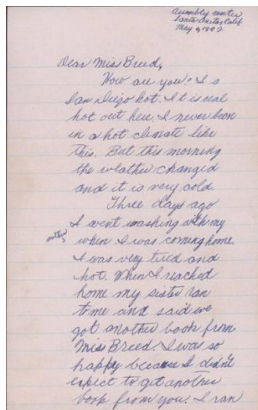 Assembly Center
Santa Anita, Calif
May 9, 1942
Dear Miss Breed,
How are you? Is
San Diego hot. It is real
hot out here. I never been
in a hot climate like
this. But this morning
the weather changed
and it is very cold.
Three days ago
I went washing with my
mother
when I was coming home
I was very tired and
hot. When I reached
home my sister ran
to me and said we
got another book from
Miss Breed. I was so
happy because I didn't
expect to get another
book from you. I ran